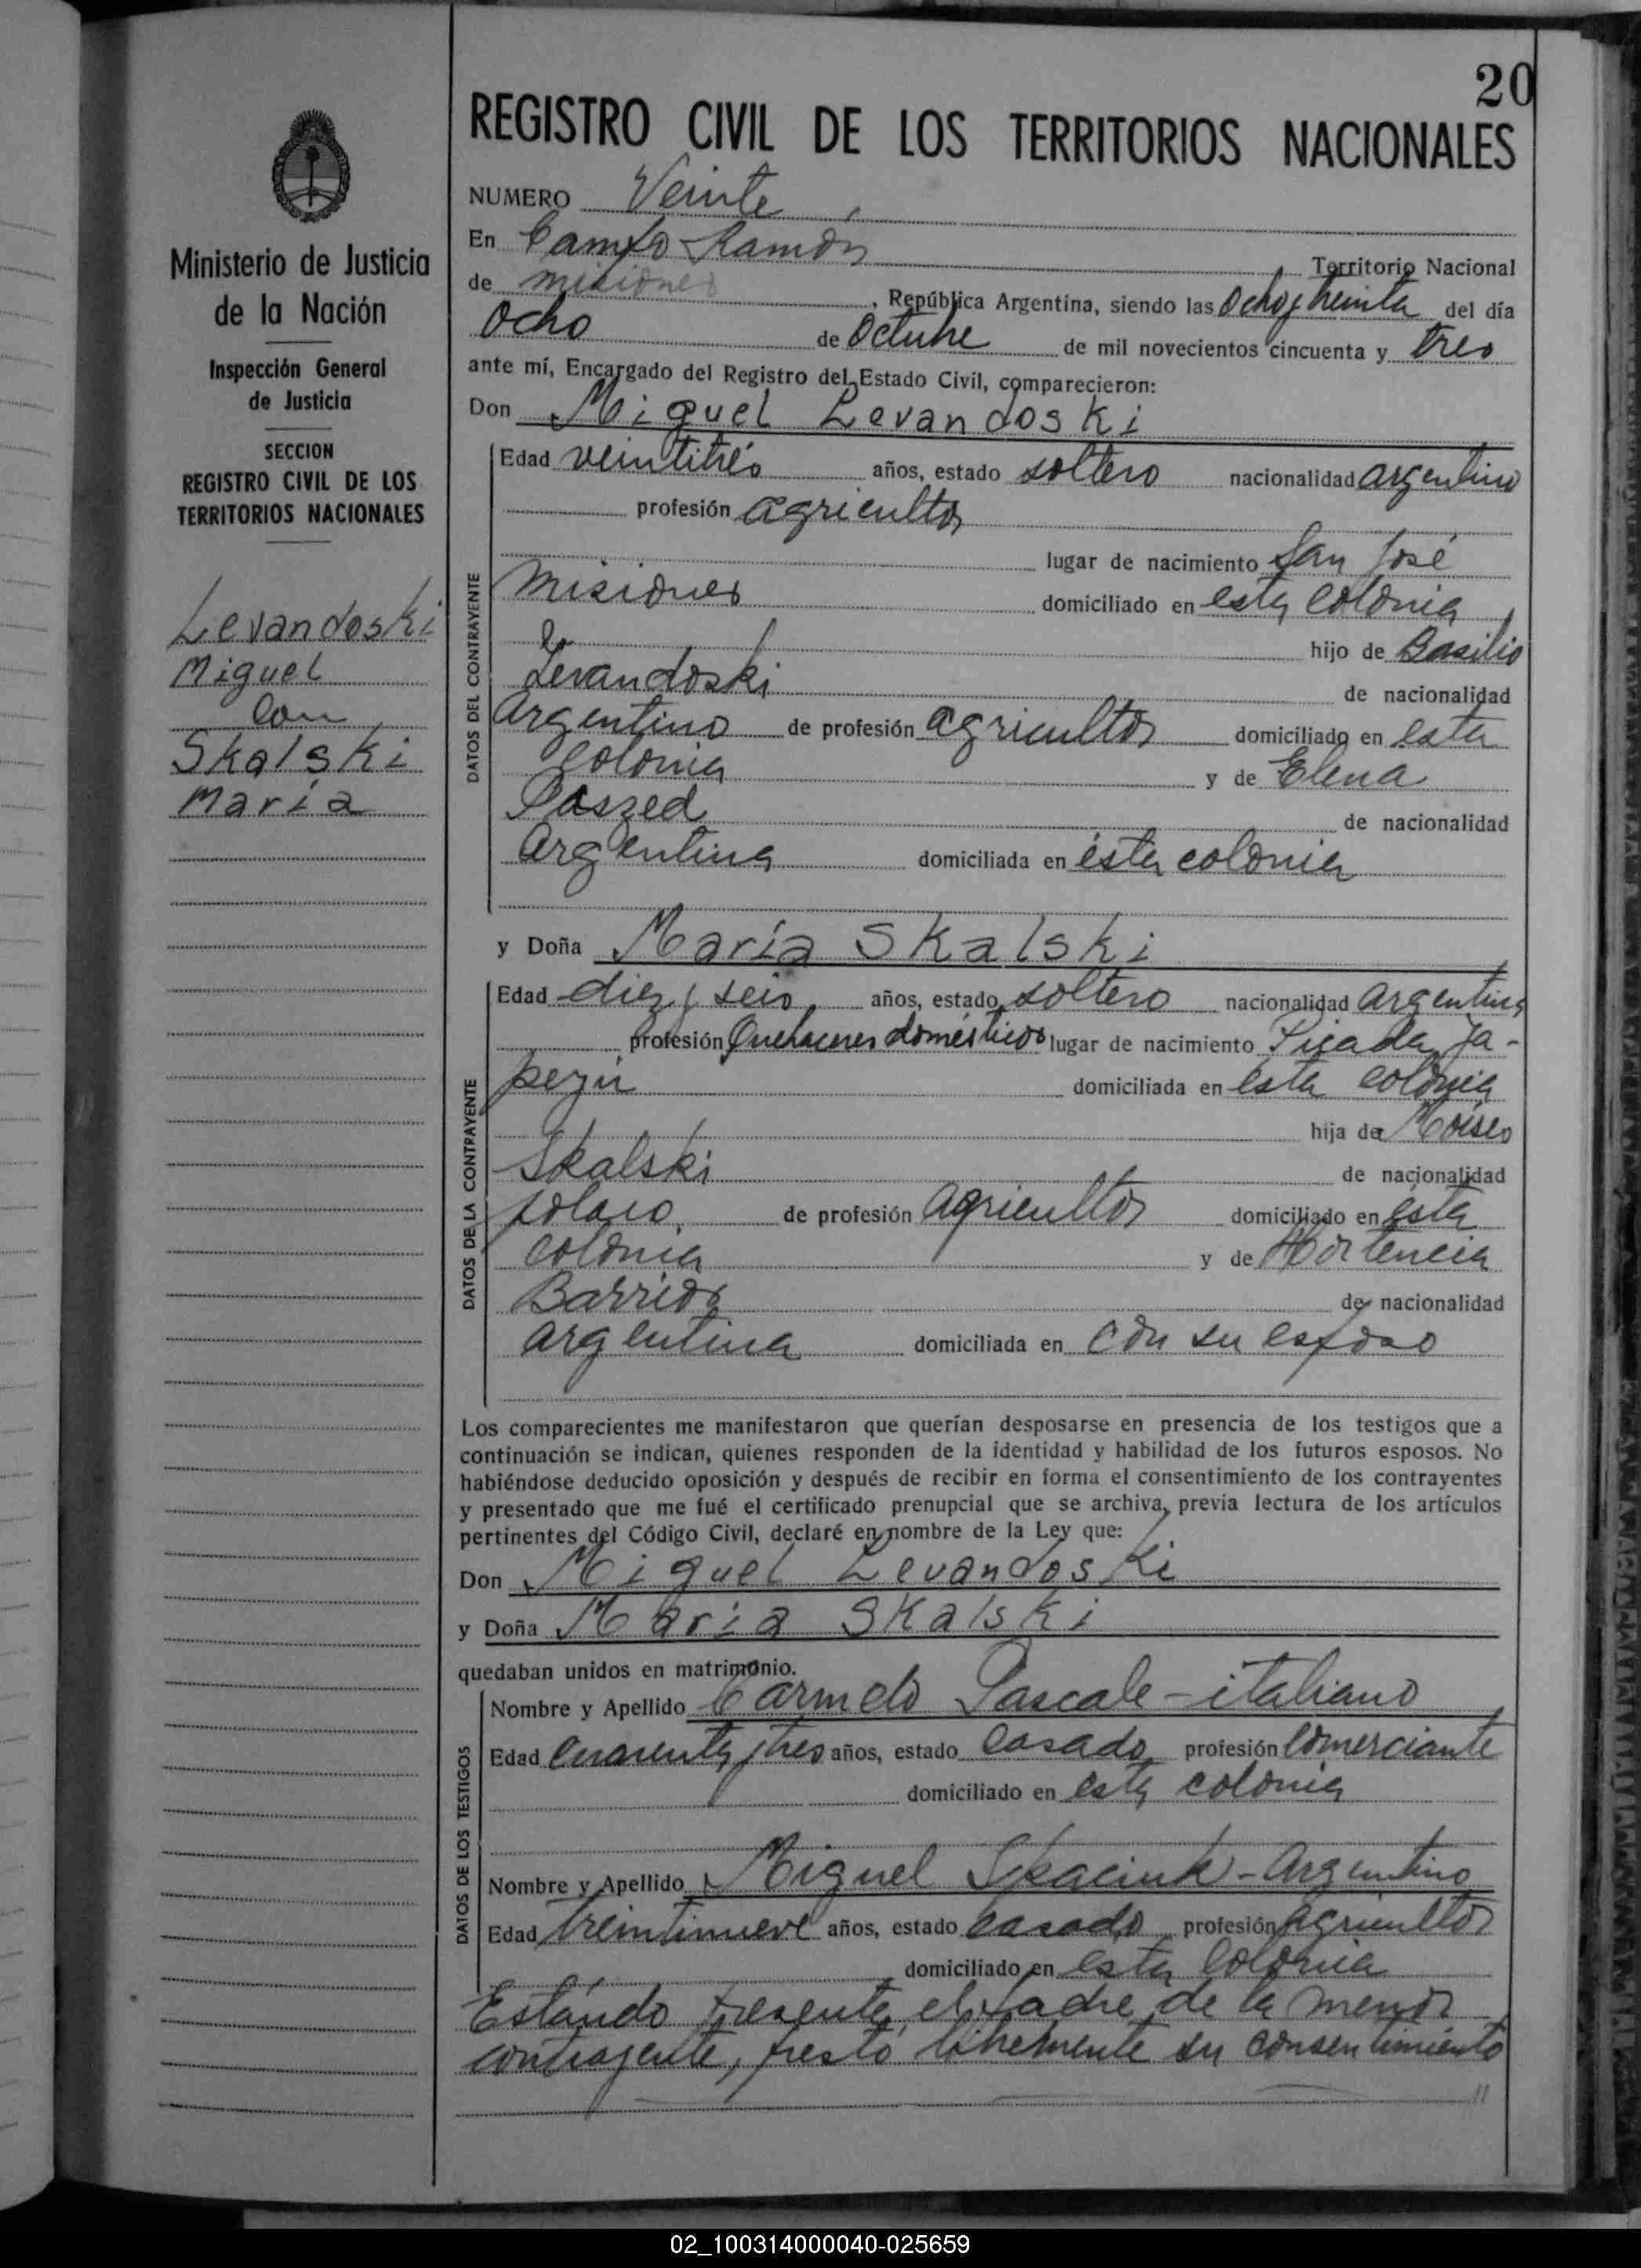 20
REGISTRO CIVIL DE LOS TERRITORIOS NACIONALES
Ministerio de Justicia
de la Nación
Inspección General
de Justicia
SECCION
REGISTRO CIVIL DE LOS
TERRITORIOS NACIONALES
Levandoski
Miguel
con
Skalski
María
NUMERO Veinte
En Campo Ramón Territorio Nacional
de Misiones, República Argentina, siendo las Ocho y treinta del día
Ocho de Octubre de mil novecientos cincuenta y tres
ante mí, Encargado del Registro del Estado Civil, comparecieron:
Don Miguel Levandoski
DATOS DEL CONTRAYENTE
Edad veintitrés años, estado soltero nacionalidad argentino
profesión agricultor
lugar de nacimiento San José
Misiones domiciliado en esta colonia
hijo de Basilio
Levandoski de nacionalidad
Argentino de profesión agricultor domiciliado en esta
colonia y de Elena
de nacionalidad
Argentina domiciliada en ésta colonia
y Doña María Skalski
DATOS DE LA CONTRAYENTE
Edad diez y seis años, estado soltero nacionalidad argentina
profesión Quehaceres domésticos lugar de nacimiento Picada Ya-
peyú domiciliada en esta colonia
hija de Moisés
Skalski de nacionalidad
polaco, de profesión agricultor domiciliado en ésta
colonia y de Hortencia
Barrios de nacionalidad
argentina domiciliada en con su esposo
Los comparecientes me manifestaron que querían desposarse en presencia de los testigos que a
continuación se indican, quienes responden de la identidad y habilidad de los futuros esposos. No
habiéndose deducido oposición y después de recibir en forma el consentimiento de los contrayentes
y presentado que me fué el certificado prenupcial que se archiva, previa lectura de los artículos
pertinentes del Código Civil, declaré en nombre de la Ley que:
Don Miguel Levandoski
y Doña María Skalski
quedaban unidos en matrimonio.
DATOS DE LOS TESTIGOS
Nombre y Apellido Carmelo Pascale - italiano
Edad cuarenta y tres años, estado casado profesión comerciante
domiciliado en esta colonia
Nombre y Apellido Miguel - Argentino
Edad treintinueve años, estado casado profesión agricultor
domiciliado en esta colonia
Estando presente el padre de la menor
contrayente, prestó libremente su consentimiento
02_100314000040-025659